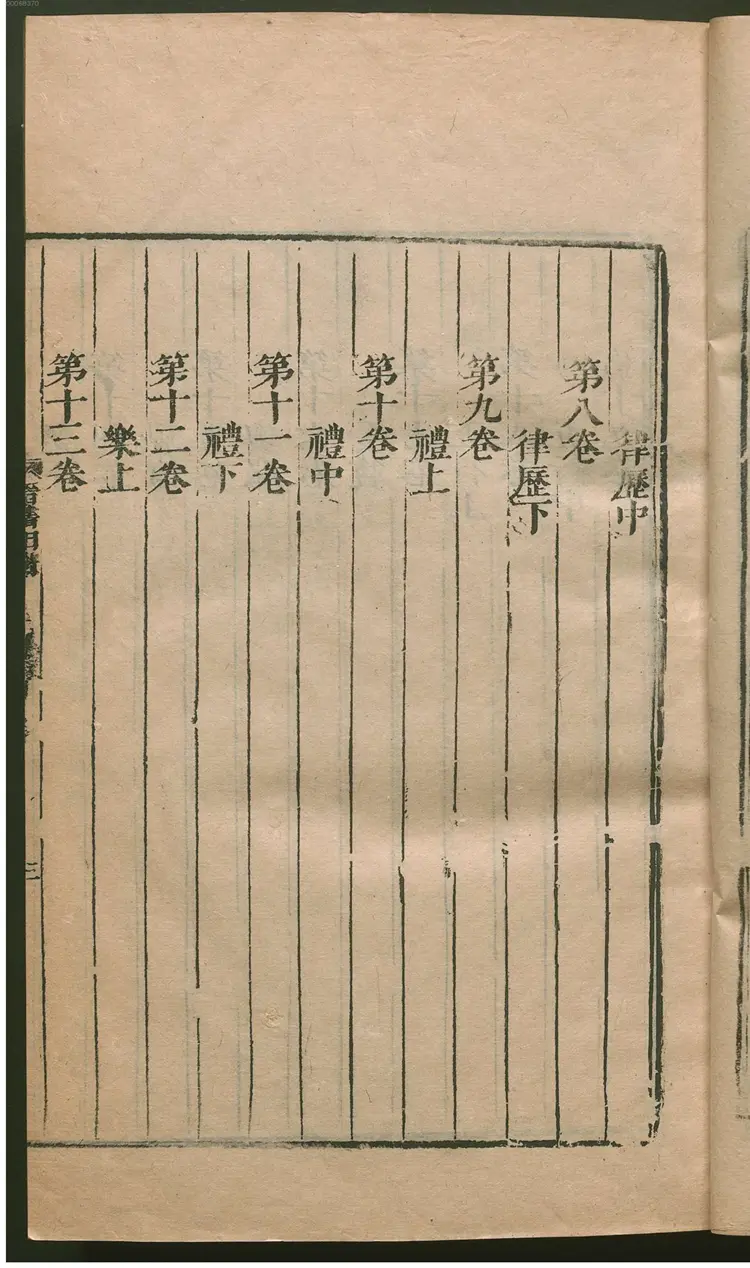 律歷中
第八卷
律歷下
第九卷
禮上
第十卷
禮中
第十一卷
禮下
第十二卷
樂上
第十三卷